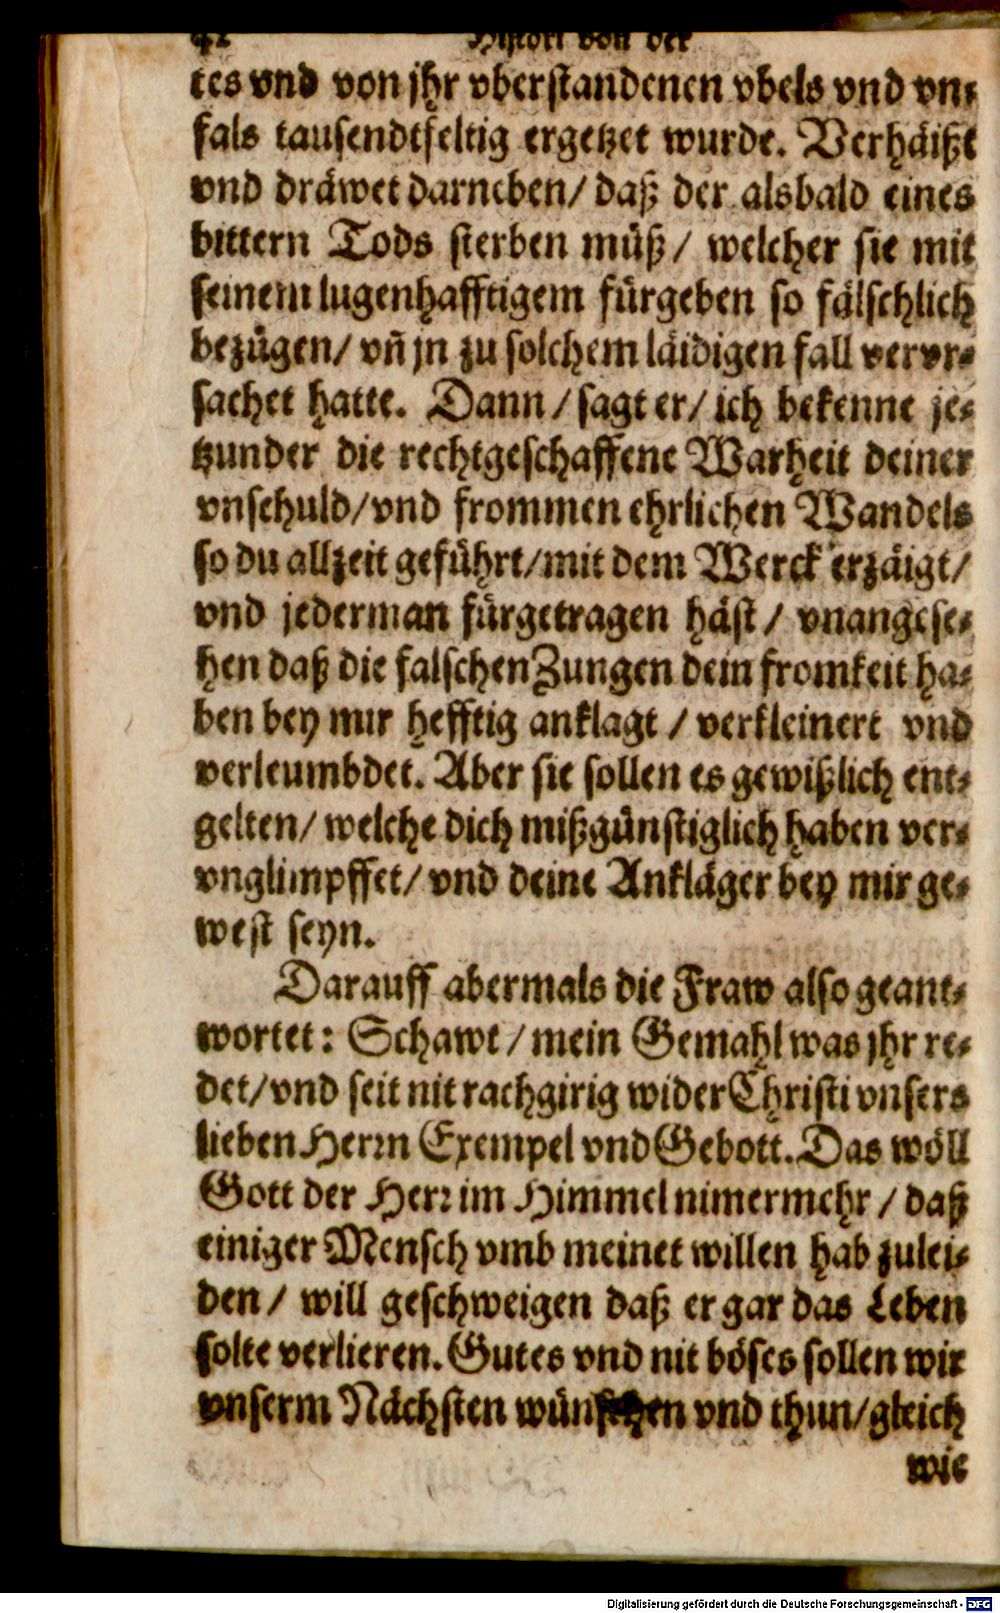 42 Histori von der
tes vnd von jhr vberstandenen vbels vnd vn⸗
fals tausendtfeltig ergetzet wurde. Verhäißt
vnd dräwet darneben/ daß der alsbald eines
bittern Tods sterben müß/ welcher sie mit
seinem lugenhafftigem fürgeben so fälschlich
bezügen/ vñ jn zu solchem läidigen fall vervr⸗
sachet hatte. Dann/ sagt er/ ich bekenne je⸗
tzunder die rechtgeschaffene Warheit deiner
vnschuld/ vnd frommen ehrlichen Wandels
so du allzeit geführt/ mit dem Werck erzäigt/
vnd jederman fürgetragen häst/ vnangese⸗
hen daß die falschen Zungen dein fromkeit ha⸗
ben bey mir hefftig anklagt/ verkleinert vnd
verleumbdet. Aber sie sollen es gewißlich ent⸗
gelten/ welche dich mißgünstiglich haben ver⸗
vnglimpffet/ vnd deine Ankläger bey mir ge⸗
west seyn.
Darauff abermals die Fraw also geant⸗
wortet: Schawt/ mein Gemahl was jhr re⸗
det/ vnd seit nit rachgirig wider Christi vnsers
lieben Herrn Exempel vnd Gebott. Das wöll
Gott der Herr im Himmel nimermehr/ daß
einiger Mensch vmb meinet willen hab zulei⸗
den/ will geschweigen daß er gar das Leben
solte verlieren. Gutes vnd nit böses sollen wir
vnserm Nächsten wünschen vnd thun/ gleich
wie
Digitalisierung gefördert durch die Deutsche Forschungsgemeinschaft - DFG